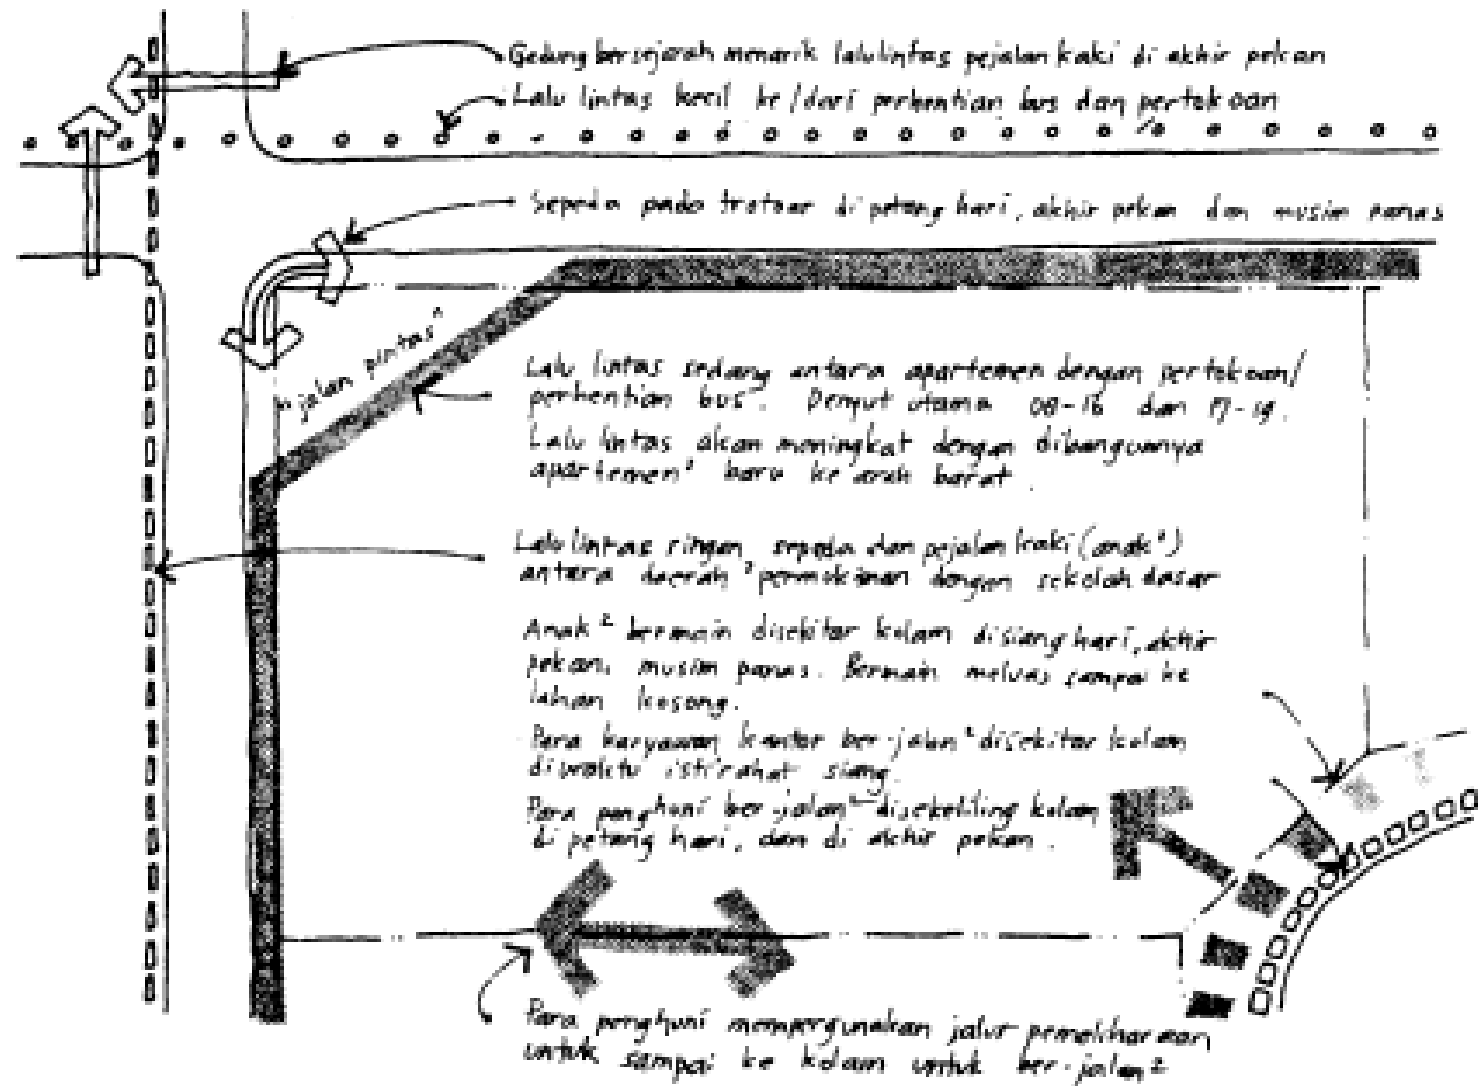 Gedung bersejarah menarik lalulintas pejalan kaki di akhir pekan
Lalu lintas kecil ke/dari perhentian bus dan pertokoan
Sepeda pada trotoar di petang hari, akhir pekan dan musim panas
"jalan pintas"
Lalu lintas sedang antara apartemen dengan pertokoan/
perhentian bus. Denyut utama dan
Lalu lintas akan meningkat dengan dibangunnya
apartemen² baru ke arah barat.
Lalu lintas ringan, sepeda dan pejalan kaki (anak²)
antara daerah² permukiman dengan sekolah dasar
Anak² bermain disekitar kolam disiang hari, akhir
pekan, musim panas. Bermain meluas sampai ke
lahan kosong.
Para karyawan kantor ber-jalan² disekitar kolam
diwaktu istirahat siang.
Para penghuni ber-jalan² disekeliling kolam
di petang hari, dan di akhir pekan.
Para penghuni mempergunakan jalur pemeliharaan
untuk sampai ke kolam untuk ber-jalan²